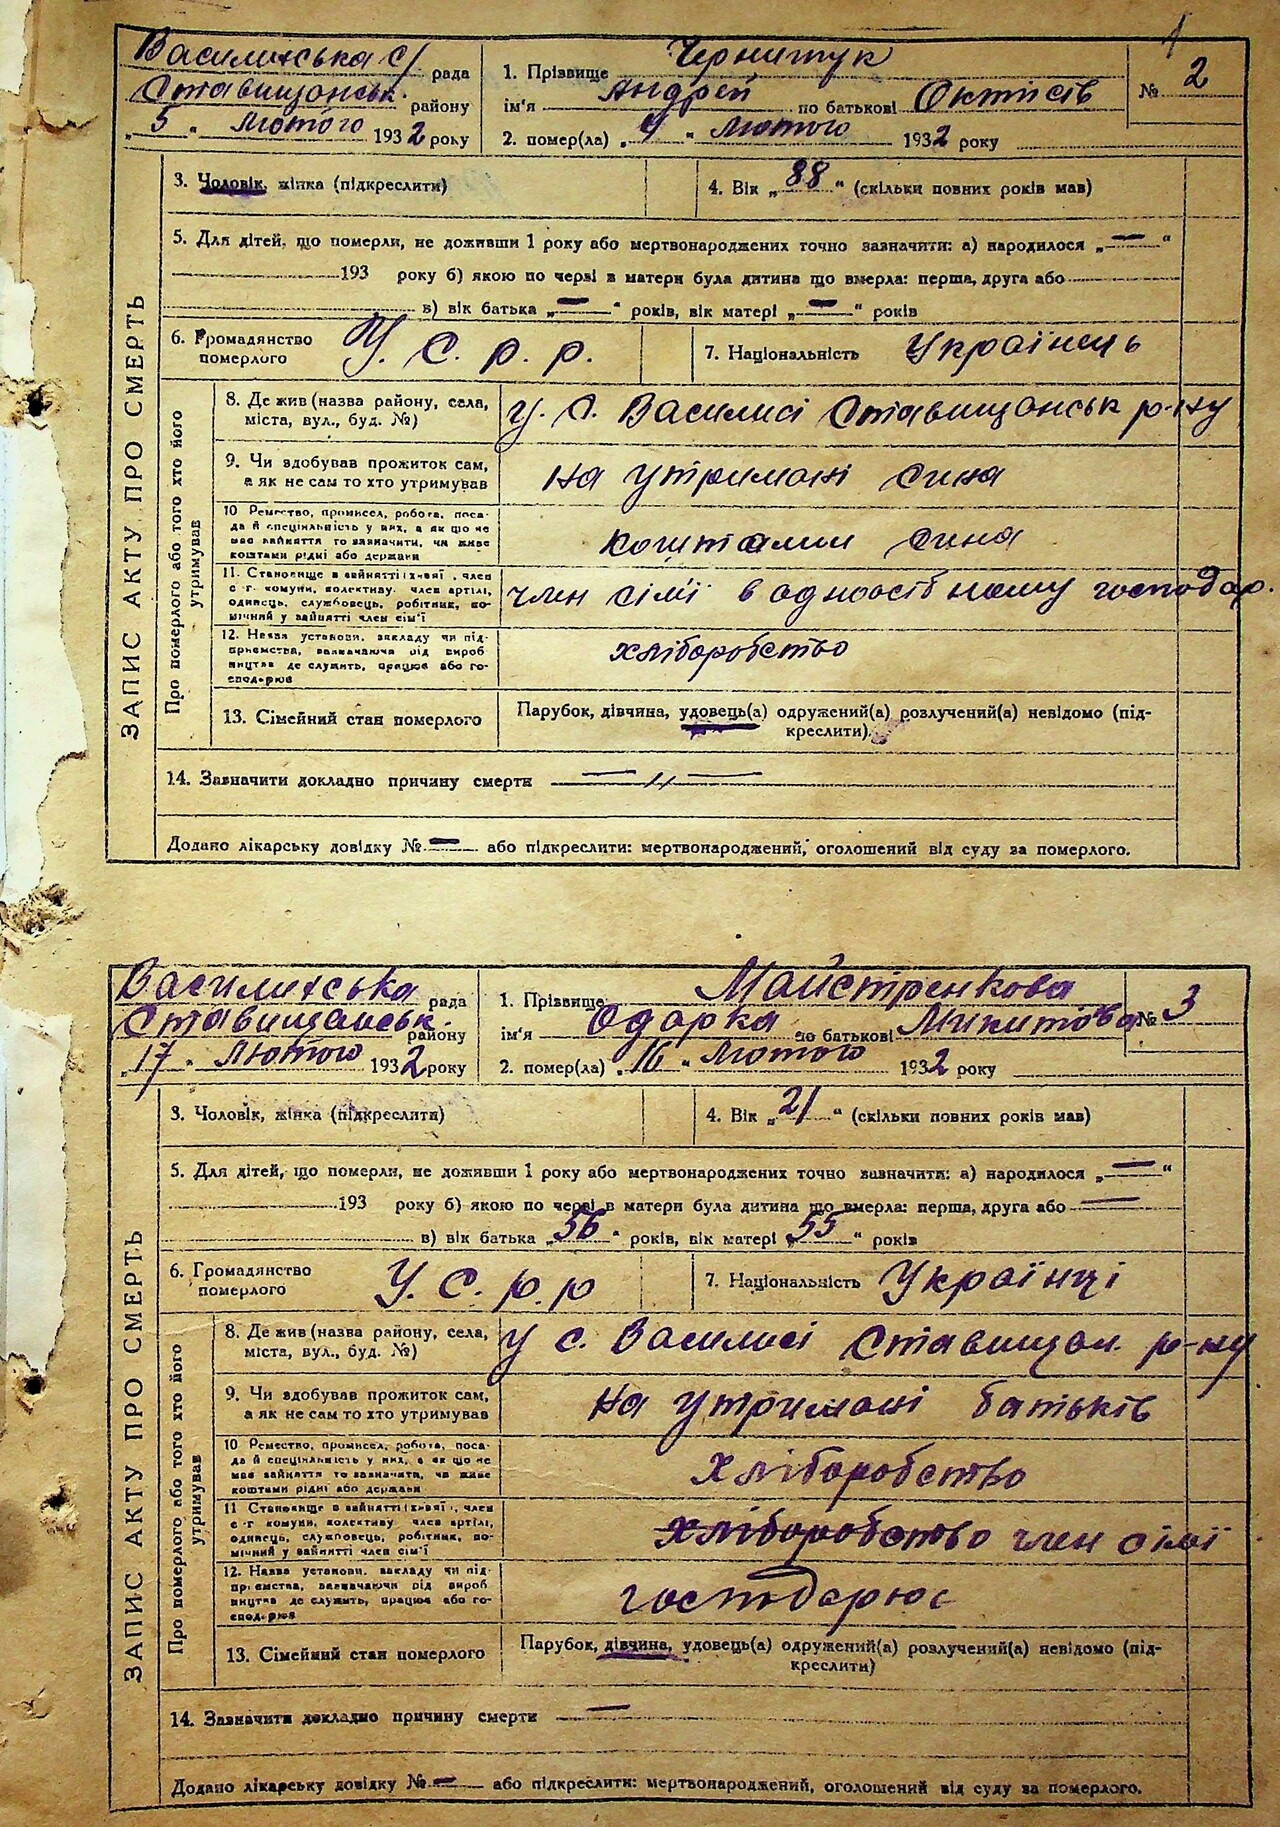 1
Василиська с/ рада
Ставищанськ. району
„ 5 „ Лютого 1932 року
1. Прізвище Чернишук
ім'я Андрей по батькові
2. помер(ла) „ 4 „ Лютого 1932 року
№ 2
ЗАПИС АКТУ ПРО СМЕРТЬ
3. Чоловік, жінка (підкреслити)
4. Вік „ 88 “ (скільки повних років мав)
5. Для дітей, що померли, не доживши 1 року або мертвонароджених точно зазначити: а) народилося „ — “
193 року б) якою по черзі в матери була дитина що вмерла: перша, друга або
в) вік батька „ — “ років, вік матері „ — “ років
6. Громадянство померлого У. С. р. р.
7. Національність Українець
Про померлого або того хто його утримував
8. Де жив (назва району, села, міста, вул., буд. №)
у. с. Василисі Ставищанськ р-ну
9. Чи здобував прожиток сам, а як не сам то хто утримував
на утримані сина
10 Ремество, промисел, робота, посада й спеціяльність у них, а як що не має зайняття то зазначити, чи живе коштами рідні або держави
коштами сина
11. Становище в зайнятті (хазяї, член с-г. комуни, колективу, член артілі, одинець, службовець, робітник, помічний у зайнятті член сім'ї
член сімї в одноосібному господар.
12. Назва установи, закладу чи підприємства, зазначаючи від виробництва де служить, працює або господарює
хліборобство
13. Сімейний стан померлого
Парубок, дівчина, удовець(а) одружений(а) розлучений(а) невідомо (підкреслити)
14. Зазначити докладно причину смерти — „ —
Додано лікарську довідку № — або підкреслити: мертвонароджений, оголошений від суду за померлого.
Василиська рада
Ставищанськ. району
„ 17 „ Лютого 1932 року
1. Прізвище Майстренкова
ім'я Одарка по батькові Микитова
2. помер(ла) „ 16 „ Лютого 1932 року
№ 3
ЗАПИС АКТУ ПРО СМЕРТЬ
3. Чоловік, жінка (підкреслити)
4. Вік „ 21 “ (скільки повних років мав)
5. Для дітей, що померли, не доживши 1 року або мертвонароджених точно зазначити: а) народилося „ — “
193 року б) якою по черзі в матери була дитина що вмерла: перша, друга або —
в) вік батька „ 56 “ років, вік матері „ 55 “ років
6. Громадянство померлого У. С. р. р
7. Національність Українці
Про померлого або того хто його утримував
8. Де жив (назва району, села, міста, вул., буд. №)
у с. Василисі Ставищан. р-ну
9. Чи здобував прожиток сам, а як не сам то хто утримував
на утримані батьків
10 Ремество, промисел, робота, посада й спеціяльність у них, а як що не має зайняття то зазначити, чи живе коштами рідні або держави
хліборобство
11 Становище в зайнятті (хазяї, член с-г. комуни, колективу, член артілі, одинець, службовець, робітник, помічний у зайнятті член сім'ї
хліборобство член сімї
12. Назва установи, закладу чи підприємства, зазначаючи від виробництва де служить, працює або господарює
господарює
13. Сімейний стан померлого
Парубок, дівчина, удовець(а) одружений(а) розлучений(а) невідомо (підкреслити)
14. Зазначити докладно причину смерти —
Додано лікарську довідку № — або підкреслити: мертвонароджений, оголошений від суду за померлого.